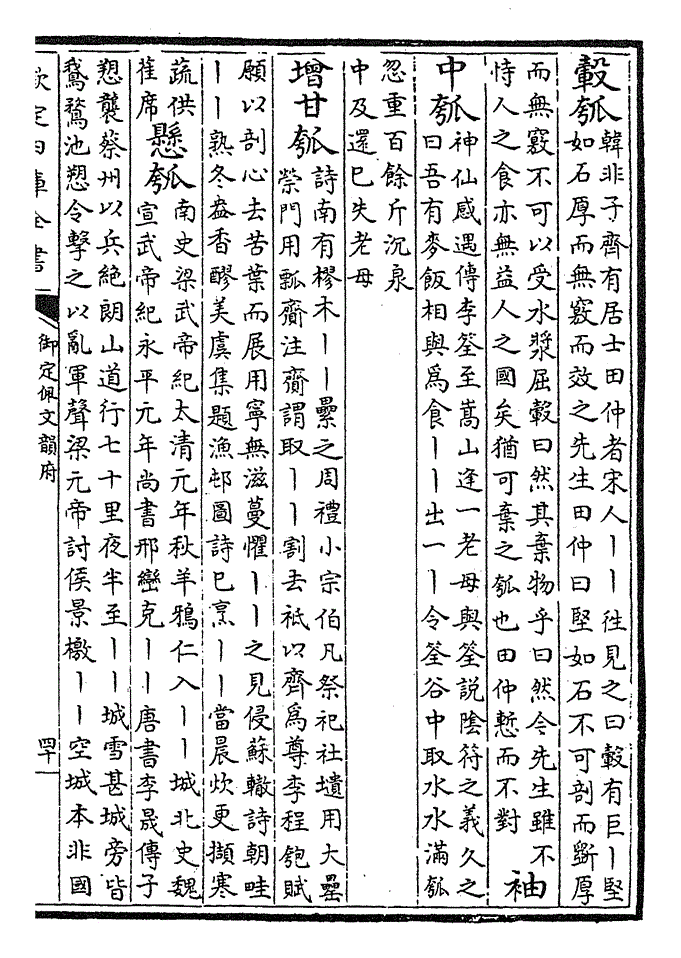 轂瓠
韓非子齊有居士田仲者宋人丨丨往見之曰轂有巨丨堅
如石厚而無竅而效之先生田仲曰堅如石不可剖而斲厚
而無竅不可以受水漿屈轂曰然其棄物乎曰然今先生雖不
恃人之食亦無益人之國矣猶可棄之瓠也田仲慙而不對
袖
中瓠
神仙感遇傳李筌至嵩山逢一老母與筌說陰符之義久之
曰吾有麥飯相與爲食丨丨出一丨令筌谷中取水水滿瓠
忽重百餘斤沉泉
中及還已失老母
增甘瓠
詩南有樛木丨丨纍之周禮小宗伯凡祭祀社壝用大罍
禜門用瓢齎注齎謂取丨丨割去柢以齊爲尊李程匏賦
願以剖心去苦葉而展用寧無滋蔓懼丨丨之見侵蘇轍詩朝畦
丨丨熟冬盎香醪美虞集題漁邨圖詩已烹丨丨當晨炊更擷寒
蔬供
萑席
懸瓠
南史梁武帝紀太清元年秋羊鴉仁入丨丨城北史魏
宣武帝紀永平元年尚書邢巒克丨丨唐書李晟傳子
愬襲蔡州以兵絕朗山道行七十里夜半至丨丨城雪甚城旁皆
鵞鶩池愬令擊之以亂軍聲梁元帝討侯景檄丨丨空城本非國
欽定四庫全書
御定佩文韻府
四十一